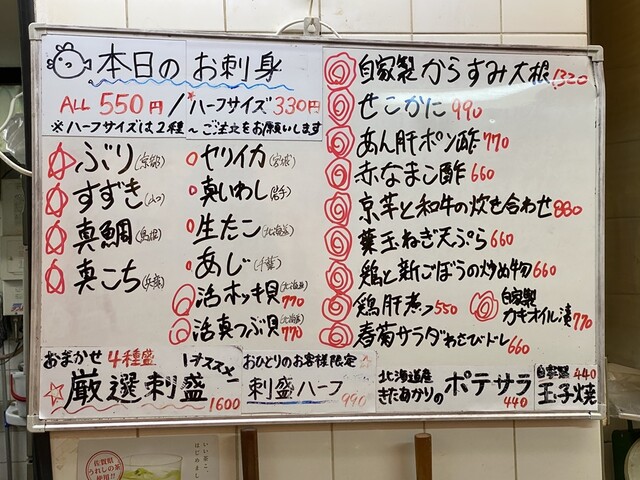 本日の お刺身
ALL 550円 / *ハーフサイズ 330円
※ハーフサイズは2種〜ご注文をお願いします
ぶり(京都)
すずき(山口)
真鯛(島根)
真こち(兵庫)
ヤリイカ(宮城)
真いわし(岩手)
生たこ(北海道)
あじ(千葉)
活ホッキ貝(北海道) 770
活真つぶ貝(北海道) 770
自家製からすみ大根 1320
せこかに 990
あん肝ポン酢 770
赤なまこ酢 660
京芋と和牛の炊き合わせ 880
葉玉ねぎ天ぷら 660
鶏と新ごぼうの炒め物 660
鶏肝煮 550
自家製
カキオイル漬 770
春菊サラダわさびドレ 660
おまかせ 4種盛 1オススメ
☆厳選刺盛 1600
おひとりのお客様限定☆
刺盛ハーフ 990
北海道産
きたあかりの ポテサラ 440
自家製 440
玉子焼
いい茶こ、
はじめまし
佐賀県
うれしの茶
使用!!